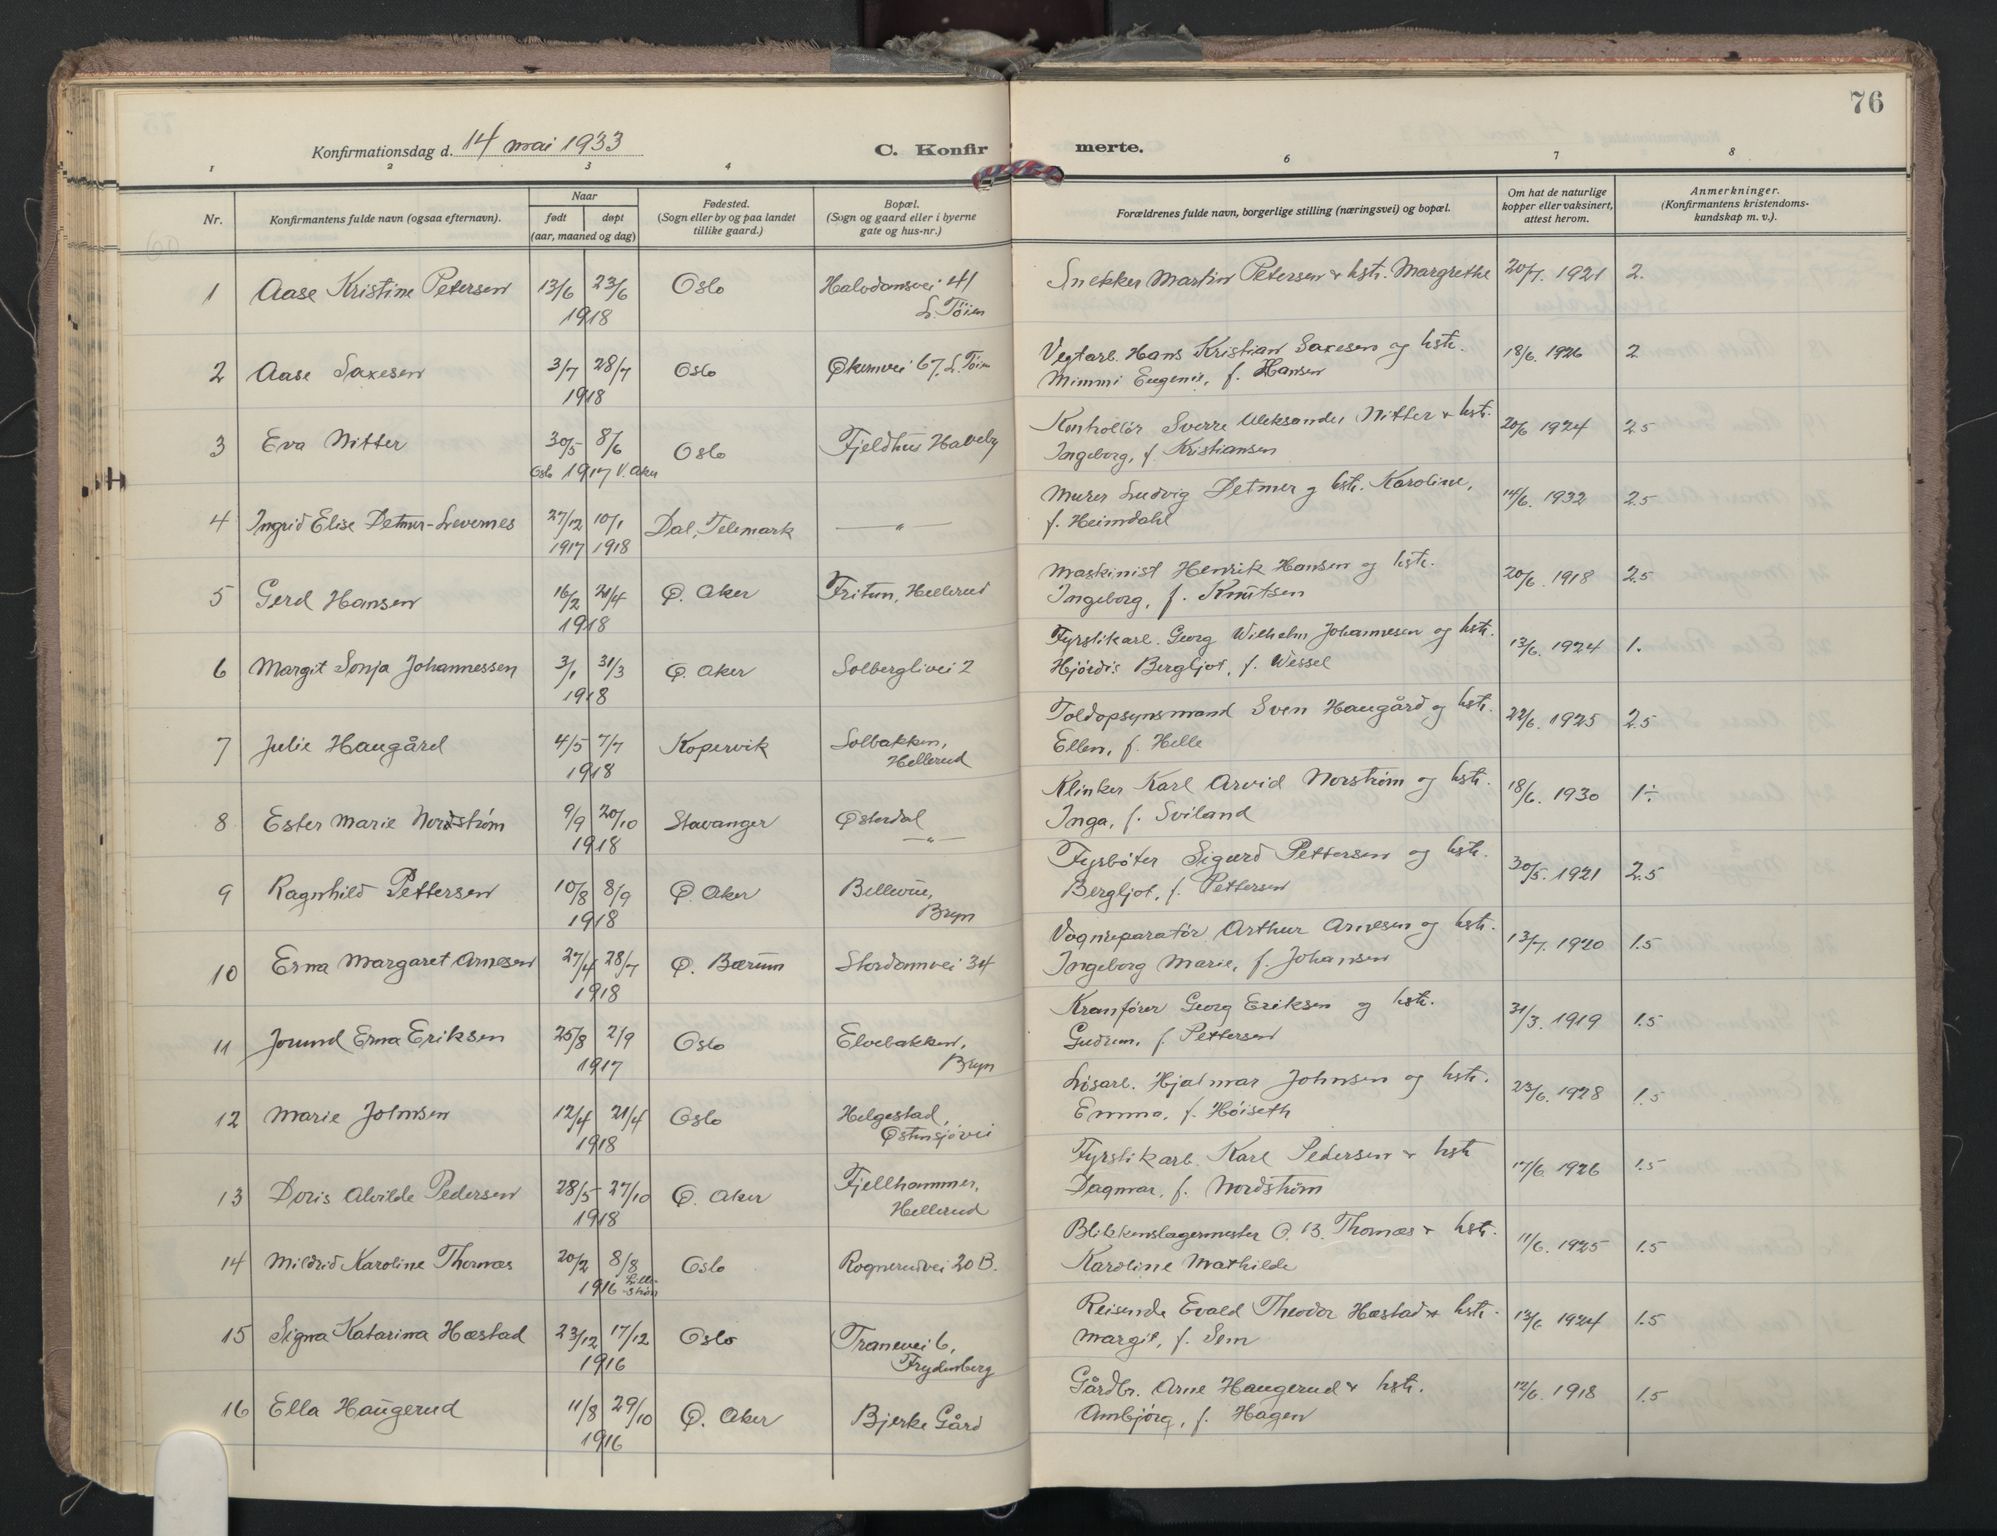 76
Konfirmationsdag d. 14 mai 1933
C. Konfirmerte.
1 2 3 4 5 6 7 8
Nr. Konfirmantens fulde navn (ogsaa efternavn). Naar født døpt (aar, maaned og dag) Fødested. (Sogn eller by og paa landet tillike gaard.) Bopæl. (Sogn og gaard eller i byerne gate og hus-nr.) Forældrenes fulde navn, borgerlige stilling (næringsvei) og bopæl. Om hat de naturlige kopper eller vaksinert, attest herom. Anmerkninger. (Konfirmantens kristendomskundskap m. v.).
1 Aase Kristine Petersen 13/6 23/6 Oslo Halvdansvei 41 Snekker Martin Petersen + hstr. Margrethe 20/7 1921 2.
1918 L. Tøien
2 Aase Saxesen 3/7 28/7 Oslo Økernvei 67, L. Tøien Vegtarb. Hans Kristian Saxesen og hstr. 18/6 1926 2
1918 Mimmi Eugenie, f. Hansen
3 Eva Nitter 30/5 8/6 Oslo Fjeldhus Haveby Kontrollør Sverre Aleksander Nitter + hstr. 20/6 1924 2.5
Oslo 1917 V. Aker Ingeborg, f. Kristiansen
4 Ingrid Elise Detmer-Levernes 27/12 10/1 Dal, Telemark — " — Murer Ludvig Detmer og hstr. Karoline, 14/6 1932 2.5
1917 1918 f. Heimdahl
5 Gerd Hansen 16/2 21/4 Ø. Aker Fritun, Hellerud Maskinist Henrik Hansen og hstr. 20/6 1918 2.5
1918 Ingeborg, f. Knutsen
6 Margit Sonja Johannessen 3/1 31/3 Ø. Aker Solberglivei 2 Fyrstikarb. Georg Wilhelm Johannesen og hstr. 13/6 1924 1.
1918 Hjørdis Bergljot, f. Wessel
7 Julie Haugård 4/5 7/7 Kopervik Solbakken, Toldopsynsmand Sven Haugård og hstr. 22/6 1925 2.5
1918 Hellerud Ellen, f. Helle
8 Ester Marie Nordstrøm 9/9 20/10 Stavanger Østerdal Klinker Karl Arvid Norstrøm og hstr. 18/6 1930 1÷
1918 — " — Inga, f. Sviland
9 Ragnhild Pettersen 10/8 8/9 Ø. Aker Bellevue, Fyrbøter Sigurd Pettersen og hstr. 30/5 1921 2.5
1918 Bryn Bergljot, f. Pettersen
10 Erna Margaret Arnesen 27/4 28/7 Ø. Bærum Stordamvei 34 Vognreparatør Arthur Arnesen og hstr. 13/7 1920 1.5
1918 Ingeborg Marie, f. Johansen
11 Jorund Erna Eriksen 25/8 2/9 Oslo Elvebakken, Kranfører Georg Eriksen og hstr. 31/3 1919 1.5
1917 Bryn Gudrun, f. Pettersen
12 Marie Johnsen 12/4 21/4 Oslo Helgestad, Løsarb. Hjalmar Johnsen og hstr. 23/6 1928 1.5
1918 Østensjøvei Emma, f. Høiseth
13 Doris Alvilde Pedersen 28/5 27/10 Ø. Aker Fjellhammer, Fyrstikarb. Karl Pedersen + hstr 17/6 1926 1.5
1918 Hellerud Dagmar, f. Nordstrøm
14 Mildrid Karoline Thomas 20/2 8/8 Oslo Rognerudvei 20 B. Blikkenslagermester O. B. Thomas + hstr. 11/6 1925 1.5
1916 Lille-strøm Karoline Mathilde
15 Signa Katarina Hæstad 23/12 17/12 Oslo Tranevei 6, Reisende Evald Theodor Hæstad + hstr. 13/6 1924 1.5
1916 Frydenberg Margit, f. Sem
16 Ella Haugerud 11/8 29/10 Ø. Aker Bjerke Gård Gårdbr. Arne Haugerud + hstr. 12/6 1918 1.5
1916 Ambjørg, f. Hagen